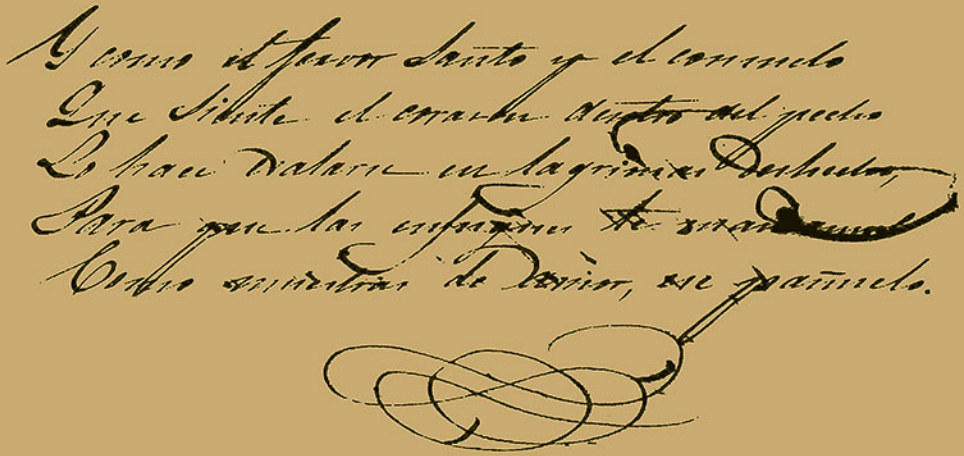 Y como el fervor Santo y el consuelo
Que Siente el corazon dentro del pecho
Lo hace exalarse en lagrimas deshecho,
Para que las enjugues te
Como muestras de Señor, ese pañuelo.